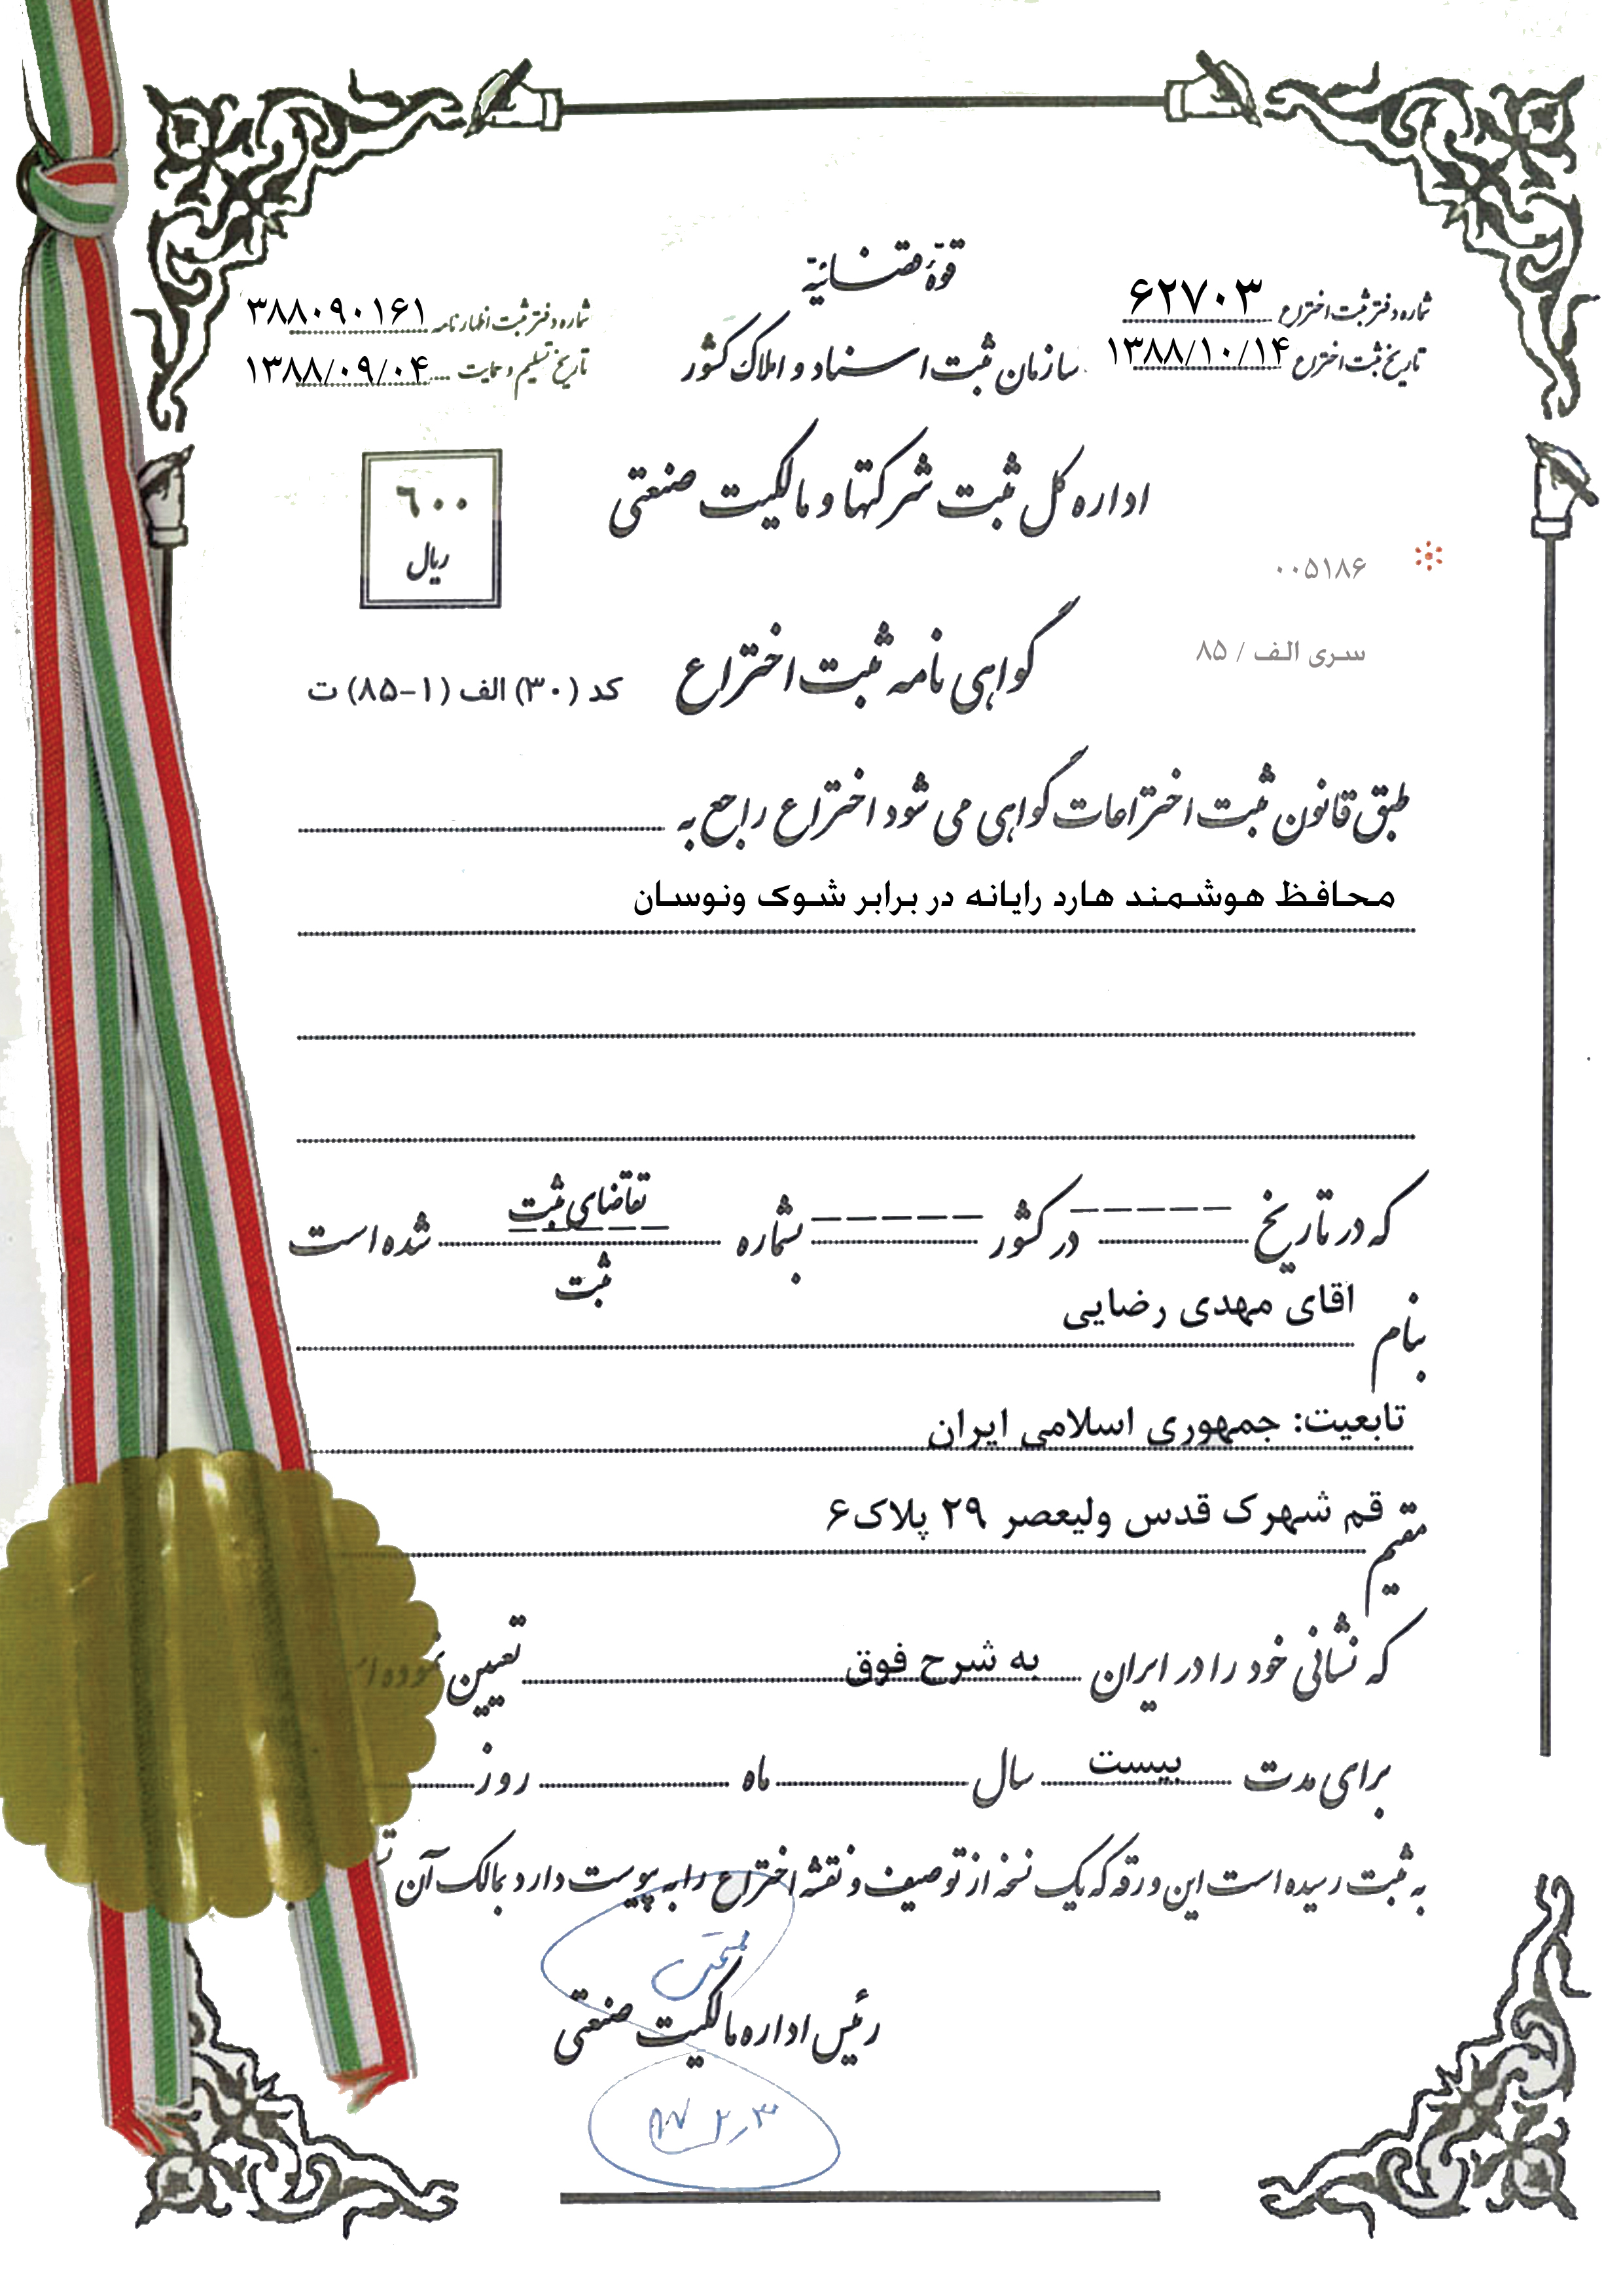 قوهٔ قضائیه
شماره دفتر ثبت اختراع ۶۲۷۰۳
شماره دفتر ثبت اظهارنامه ۳۸۸۰۹۰۱۶۱
سازمان ثبت اسناد و املاک کشور
تاریخ ثبت اختراع ۱۳۸۸/۱۰/۱۴
تاریخ تسلیم و حمایت ۱۳۸۸/۰۹/۰۴
اداره کل ثبت شرکتها و مالکیت صنعتی
۶۰۰
ریال
۰۰۵۱۸۶
سری الف / ۸۵
گواهی نامه ثبت اختراع
کد (۳۰) الف (۱-۸۵) ت
طبق قانون ثبت اختراعات گواهی می شود اختراع راجع به
محافظ هوشمند هارد رایانه در برابر شوک ونوسان
که در تاریخ ------ در کشور ------ بشماره تقاضای ثبت ------ ثبت شده است
بنام اقای مهدی رضایی
تابعیت: جمهوری اسلامی ایران
مقیم قم شهرک قدس ولیعصر ۲۹ پلاک۶
که نشانی خود را در ایران به شرح فوق تعیین نموده
برای مدت بیست سال ماه روز
به ثبت رسیده است این ورقه که یک نسخه از توصیف و نقشه اختراع را به پیوست دارد بمالک آن
رئیس اداره مالکیت صنعتی